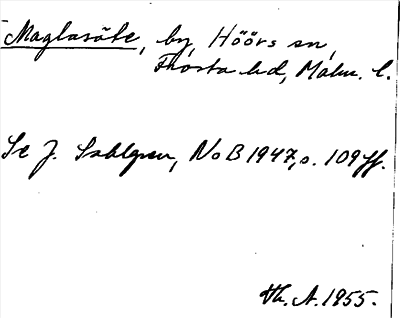 Maglasäte, by, Höörs sn,
Frosta hd, Malm. l.
Se J. Sahlgren, NoB 1947, s. 109 ff.
Th. A. 1955.